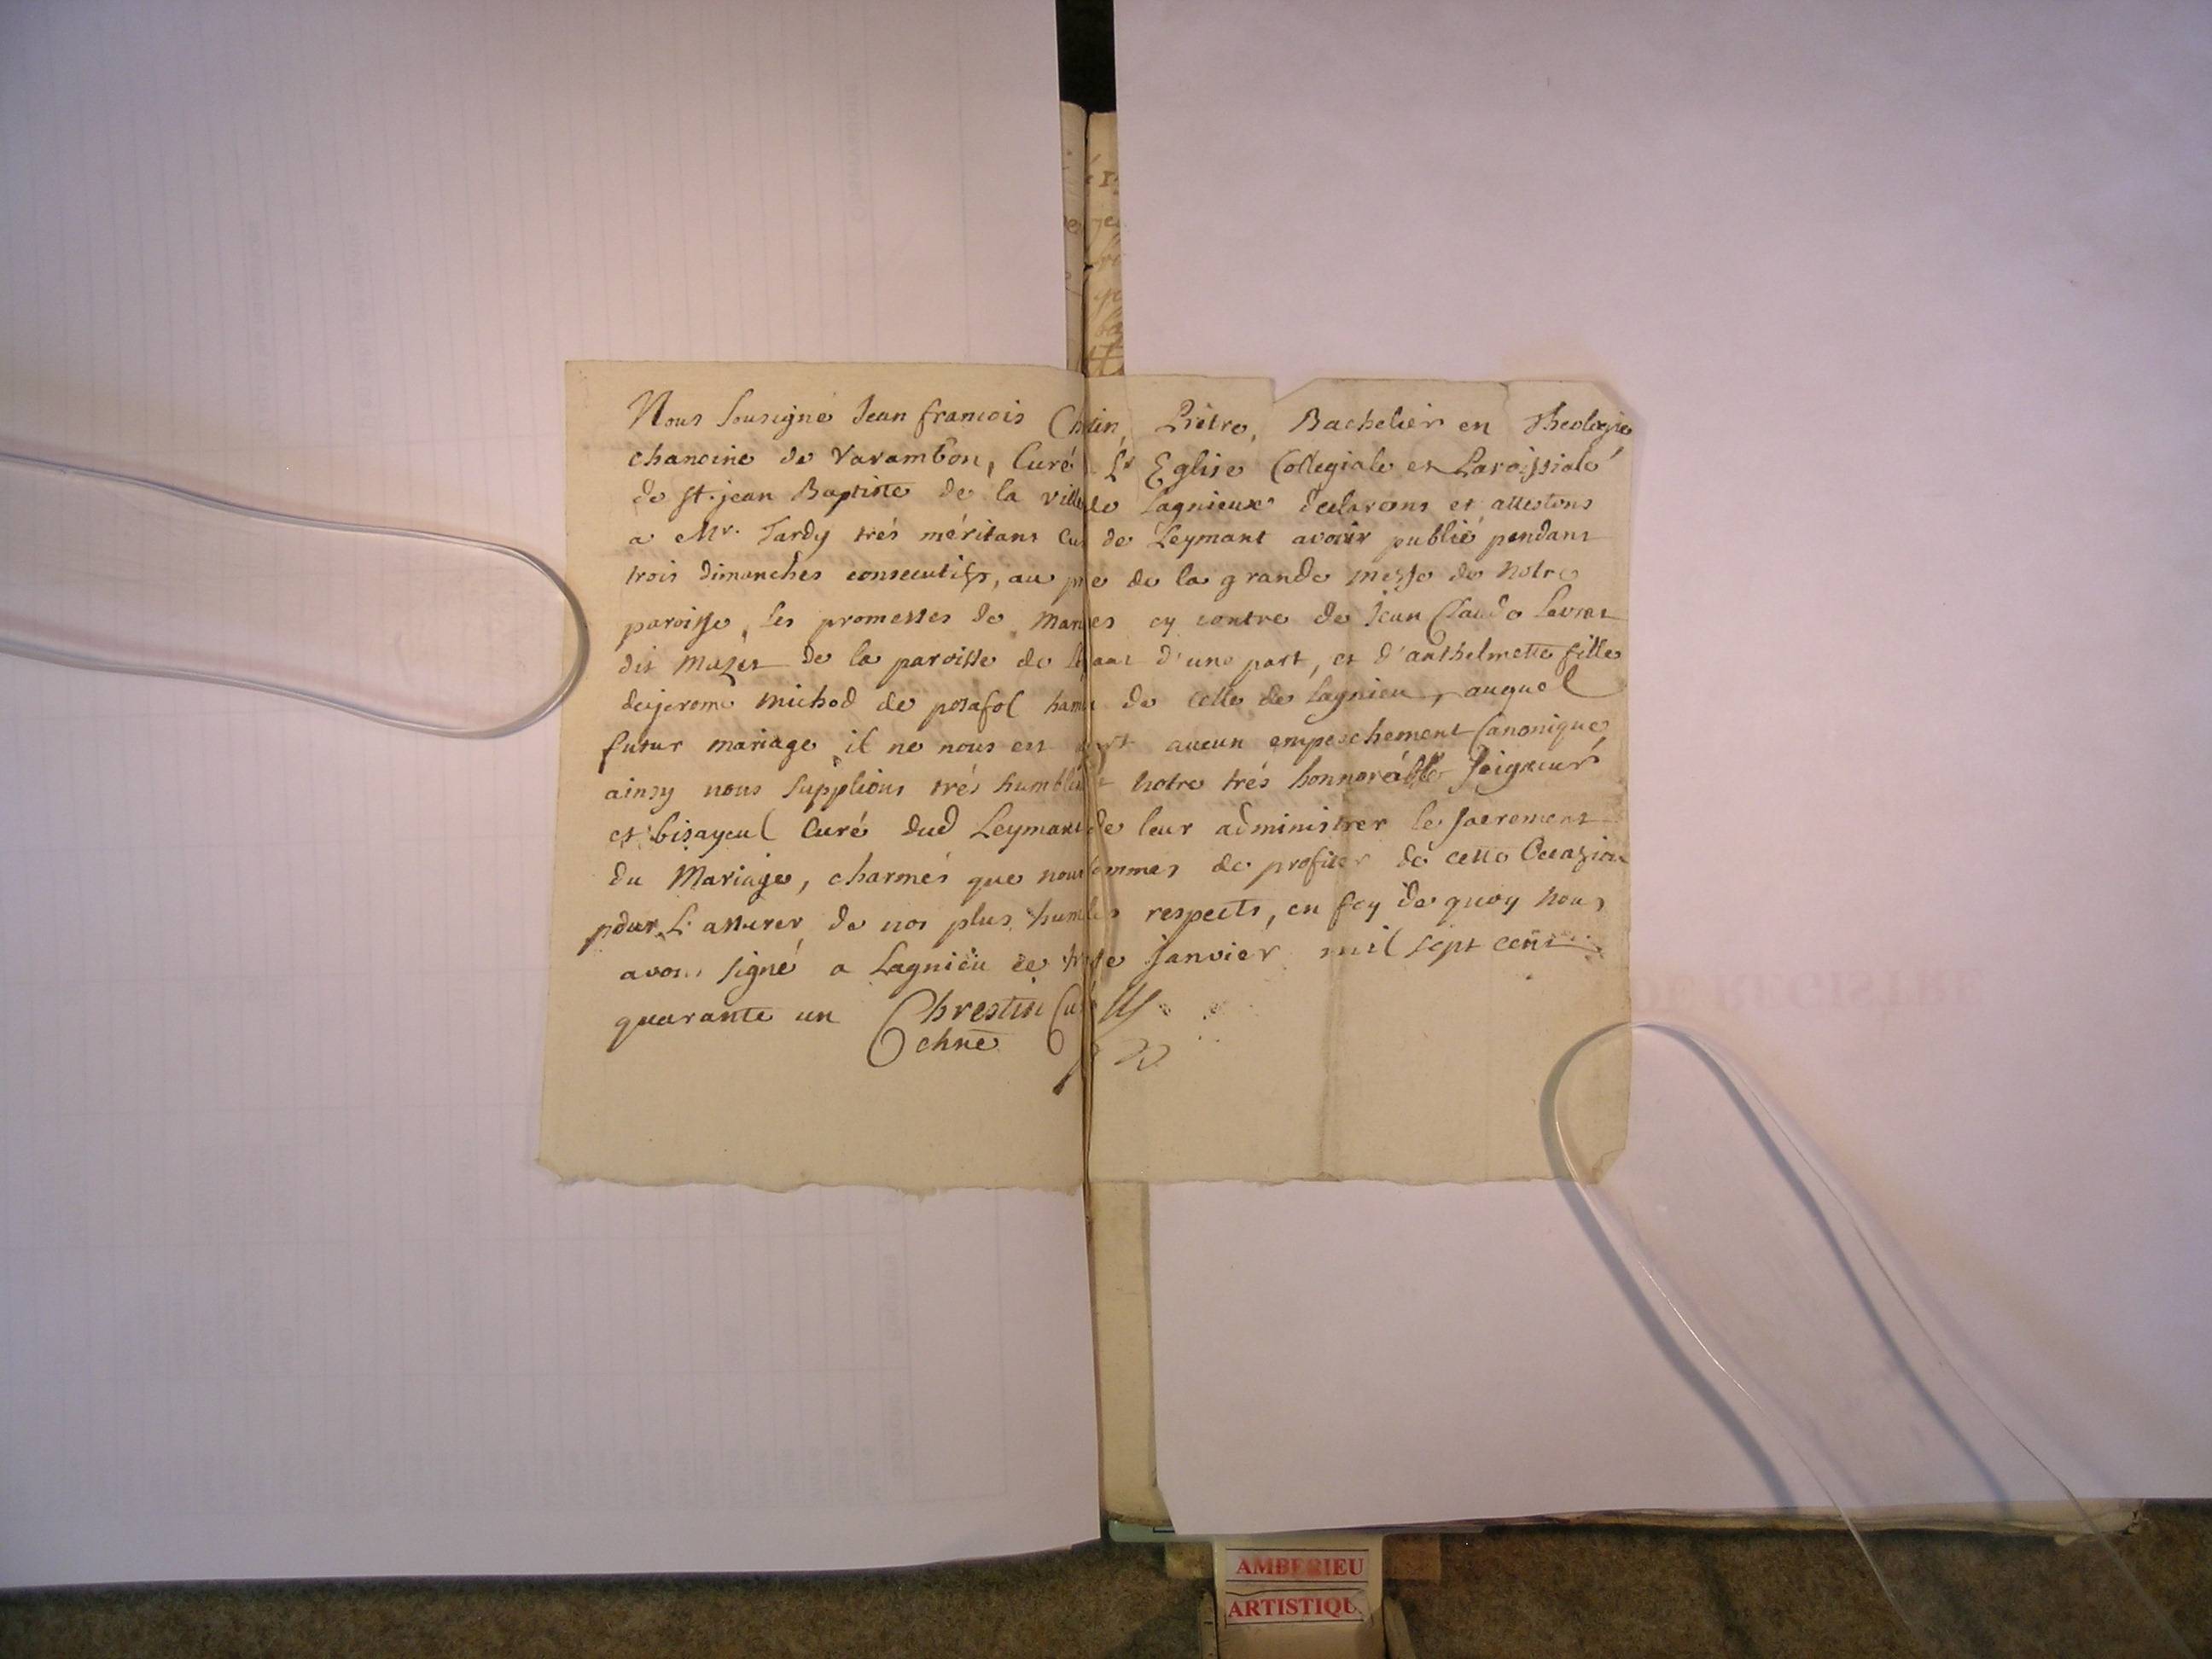 Nous sousigné Jean francois Ch tin, Prêtre, Bachelier en Theologie
chanoine de Varambon, Curé Eglise Collegiale et Paroissiale
de st. jean Baptiste de la ville de Lagnieux declarons et attestons
a Mr. Tardy trés méritant Cu de Leymant avoir publié pendant
trois dimanches consecutifs, au p e de la grande messe de notre
paroisse, les promesses de Mar es cy contre de Jean Claude
dit de la paroisse de L ant d'une part, et d'anthelmette fille
de jerome michod de posafol ham de celle de Lagnieu, auquel
futur mariage il ne nous est aucun empeschement Canonique,
ainsy nous supplions trés humble t notre trés honnorable Seigneur
et bisayeul Curé dud Leymant de leur administrer le sacrement
du Mariage, charmés que nous sommes de profiter de cette Occazion
pour L'assurer de nos plus humbles respects, en foy de quoy nous
avons signé a Lagnieu ce janvier mil sept cent
quarante un Chrestin Curé
chne
AMBERIEU
ARTISTIQU